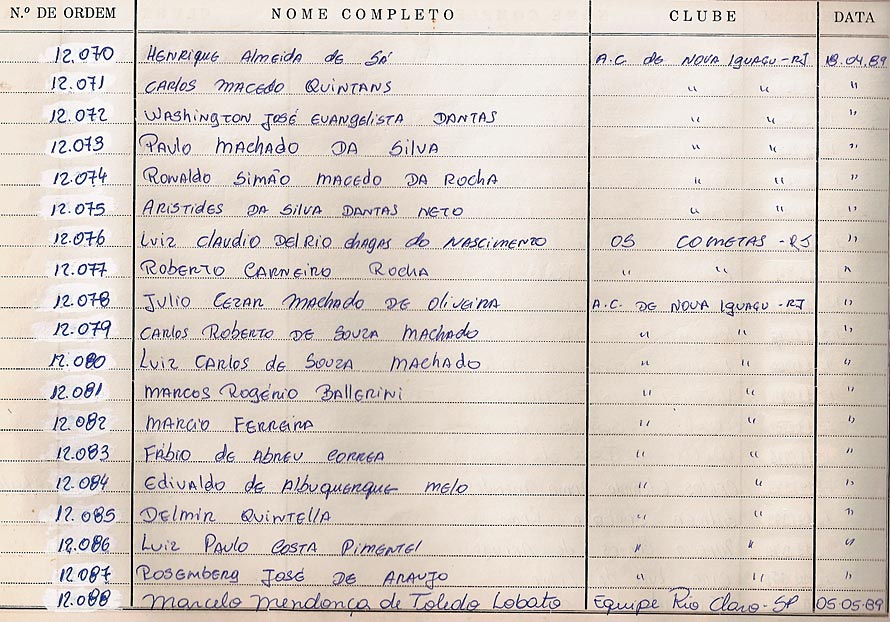 N.º DE ORDEM NOME COMPLETO CLUBE DATA
12.070 Henrique Almeida de Sá A.C. de Nova Iguaçu - RJ 18.04.89
12.071 Carlos Macedo Quintans " " "
12.072 Washington José Evangelista Dantas " " "
12.073 Paulo Machado da Silva " " "
12.074 Ronaldo Simão Macedo da Rocha " " "
12.075 Aristides da Silva Dantas Neto " " "
12.076 Luiz Claudio Delrio Chagas do Nascimento Os Cometas - RJ "
12.077 Roberto Carneiro Rocha " " "
12.078 Julio Cezar Machado de Oliveira A.C. de Nova Iguaçu - RJ "
12.079 Carlos Roberto de Souza Machado " " "
12.080 Luiz Carlos de Souza Machado " " "
12.081 Marcos Rogério Ballerini " " "
12.082 Marcio Ferreira " " "
12.083 Fábio de Abreu Correa " " "
12.084 Edivaldo de Albuquerque Melo " " "
12.085 Delmir Quintella " " "
12.086 Luiz Paulo Costa Pimentel " " "
12.087 Rosemberg José de Araujo " " "
12.088 Marcelo Mendonça de Toledo Lobato Equipe Rio Claro - SP 05.05.89